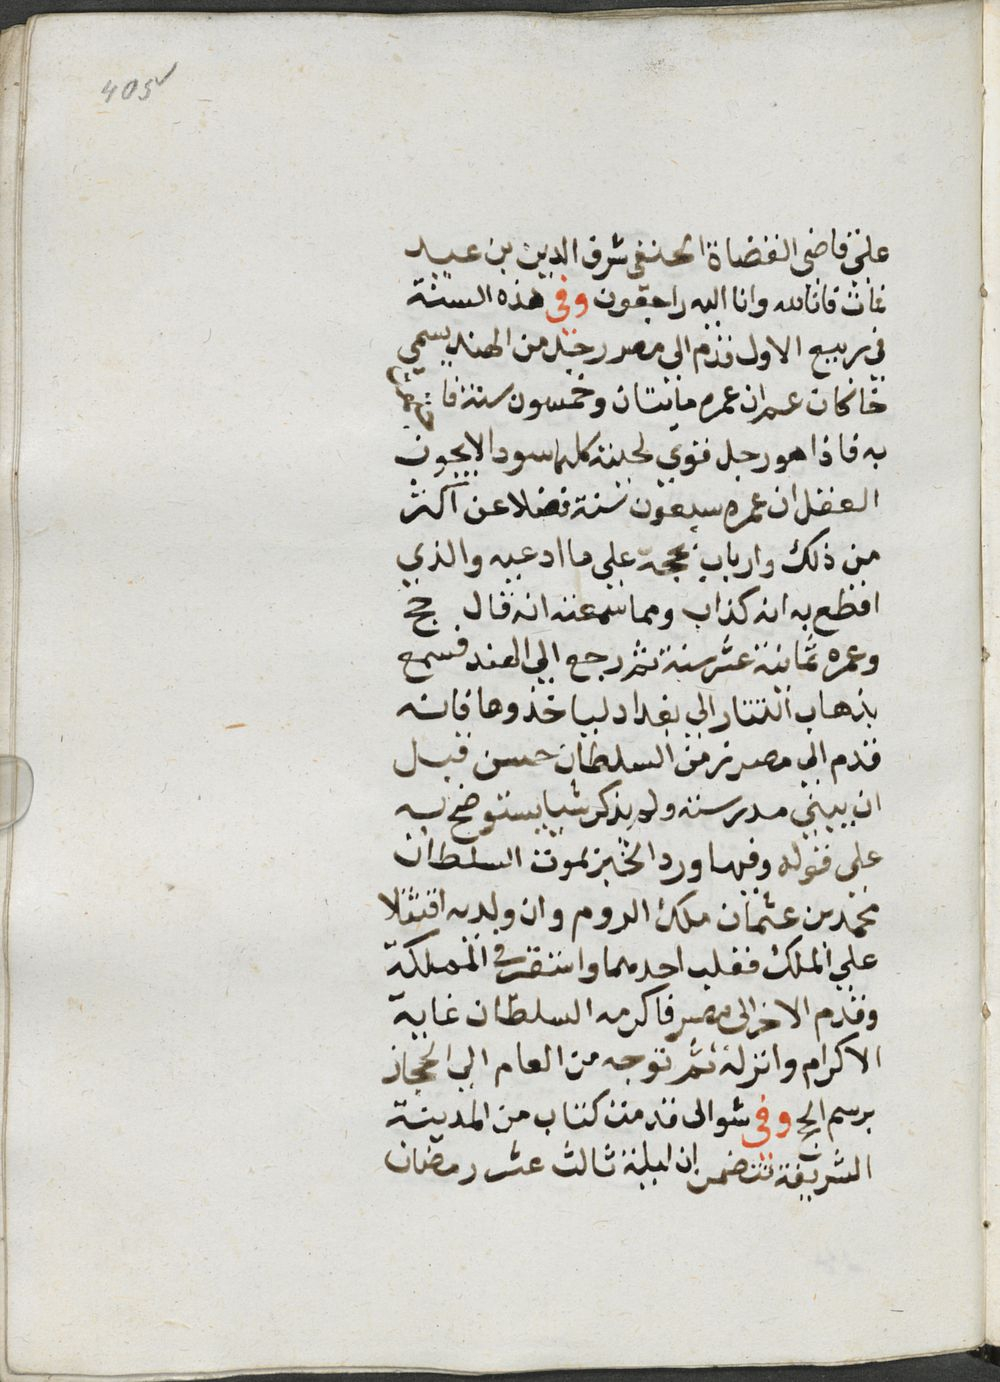 405
على قاضى القضاة الحنفى شرف الدين بن عيد
فات فانا لله وانا اليه راجعون وفى هذه السنة
فى ربيع الاول قدم الى مصر رجل من الهند يسمى
خاكان عمران عمره مائتان وخمسون سنة فا
به فاذا هو رجل قوي لحيته كلها سود الا يجوز
العقل ان عمره سبعون سنة فضلا عن اكثر
من ذلك وارباب حجة على ما ادعيه والذي
اقطع به انه كذاب ومما سمعته انه قال حج
وعمره ثمانية عشر سنة ثم رجع الى الهند فسمع
بذهاب التتار الى بغداد ليا خذوها فانه
قدم الى مصر زمن السلطان حسن قبل
ان يبني مدرسته ولم يذكر شيا يستوضح به
على قوله وفيها ورد الخبر بموت السلطان
محمد بن عثمان ملك الروم وان ولديه اقتتلا
على الملك فغلب احدهما واستقر فى المملكة
وقدم الاخر الى مصر فاكرمه السلطان غاية
الاكرام وانزله ثم توجه من العام الى الحجاز
برسم الحج وفى شوال قدمت كتاب من المدينة
الشريفة تتضمن ان ليلة ثالث عشر رمضان